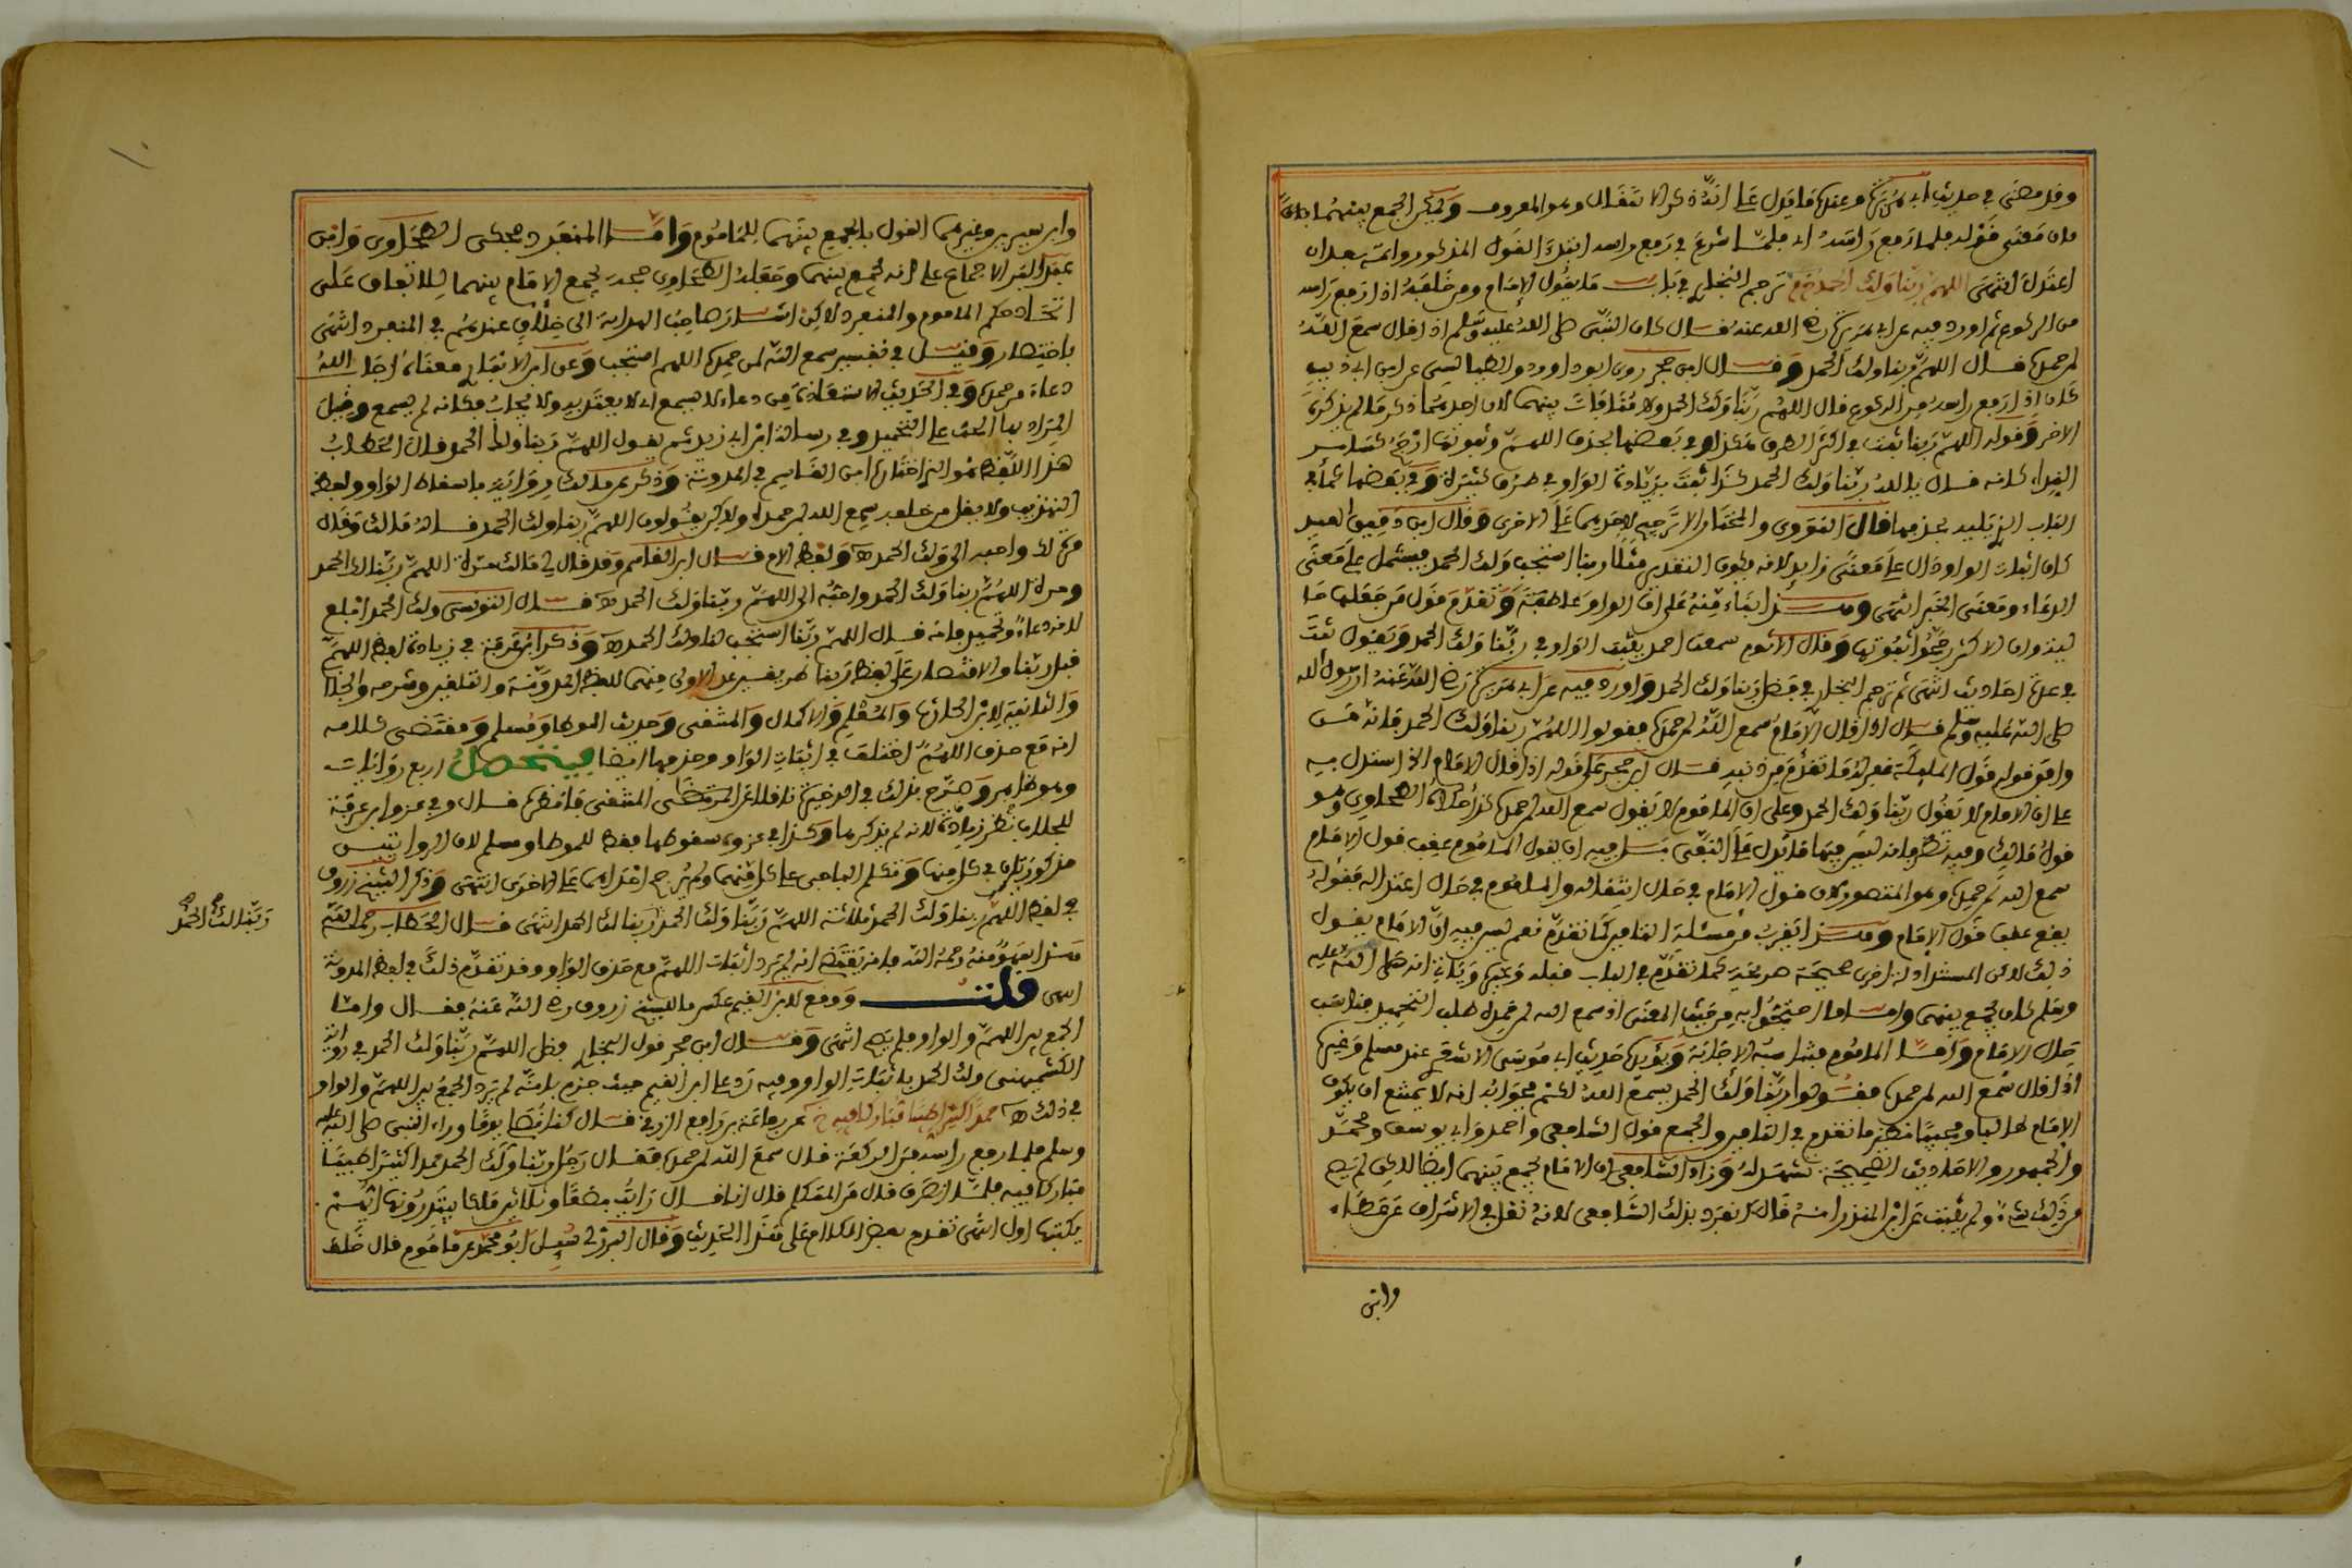 وقد مضى في حديث ابي هريرة وغيره ما يدل على انه ذكر الانتقال وهو المعروف ويمكن الجمع بينهما بان
معنى قوله فلما رفع راسه اي فلما شرع في رفع راسه ابتدا القول المذكور واتمه بعد ان
اعتدل انتهى اللهم ربنا ولك الحمد ترجم البخاري في باب ما يقول الامام ومن خلفه اذا رفع راسه
من الركوع ثم اورد فيه عن ابي هريرة رضي الله عنه قال كان النبي صلى الله عليه وسلم اذا قال سمع الله
لمن حمده قال اللهم ربنا ولك الحمد وقال ابن حجر روى ابو داوود الطيالسي عن ابن ابي ذيب
كان اذا رفع راسه من الركوع قال اللهم ربنا ولك الحمد ولا منافات بينهما لان احدهما ذكر ما لم يذكره
الاخر وقوله اللهم ربنا ثبت في اكثر الطرق هكذا وفي بعضها بحذف اللهم وثبوتها ارجح
النداء كانه قال يا الله ربنا ولك الحمد كذا ثبت بزيادة الواو في طرق كثيرة وفي بعضها كما في
الباب الذي يليه بحذفها قال النووي والمختار الا ترجيح لاحدهما على الاخرى وقال ابن دقيق العيد
كان اثبات الواو دال على معنى زايد لانه يكون التقدير مثلا ربنا استجب ولك الحمد فيشتمل على معنى
الدعاء ومعنى الخبر انتهى وهذا بناء منه على ان الواو عاطفة وتقدم قول من جعلها
وان الاكثر رجحوا ثبوتها وقال الاثرم سمعت احمد يثبت الواو في ربنا ولك الحمد ويقول ثبت
في عدة احاديث انتهى ثم ترجم البخاري في فضل ربنا ولك الحمد واورد فيه عن ابي هريرة رضي الله عنه ان رسول الله
صلى الله عليه وسلم قال اذا قال الامام سمع الله لمن حمده فقولوا اللهم ربنا ولك الحمد فانه من
وافق قوله قول الملايكة غفر له ما تقدم من ذنبه قال ابن حجر على قوله اذا قال الامام الخ استدل به
على ان الامام لا يقول ربنا ولك الحمد وعلى ان الماموم لا يقول سمع الله لمن حمده كذا حكاه الطحاوي وهو
قول مالك وفيه نظر فانه ليس فيهما ما يدل على النفي بل فيه ان يقول الماموم عقب قول الامام
سمع الله لمن حمده وهو المتصور لان قول الامام في حال انتقاله والماموم في حال اعتداله فقوله
يقع عقب قول الامام وهذا يقرب من مسئلة التامين كما تقدم نعم ليس فيه ان الامام يقول
ذلك لاكن المستدل له اخرى صحيحة صريحة كما تقدم في الباب قبله وغيره وياتي انه صلى الله عليه
وسلم كان يجمع بينهما واما ما احتجوا به من حيث المعنى ان سمع الله لمن حمده طلب التحميد فناسب
حال الامام واما الماموم فتناسبه الاجابة ويؤيده حديث ابي موسى الاشعري عند مسلم وغيره
اذا قال سمع الله لمن حمده فقولوا ربنا ولك الحمد يسمع الله لكم فجوابه انه لا يمتنع ان يكون
الامام طالبا ومجيبا نظير ما تقدم في التامين والجمع قول الشافعي واحمد وابي يوسف ومحمد
والجمهور والاحاديث الصحيحة تشهد له وزاد الشافعي ان الامام يجمع بينهما ايضا لاكن لم يصح
في ذلك شيء ولم يثبت عن ابن المنذر انه قال انفرد بذلك الشافعي لانه نقل في الاشراف عن عطاء
وابن
وابن سيرين وغيرهما القول بالجمع بينهما للماموم واما المنفرد فحكى الطحاوي وابن
عبد البر الاجماع على انه يجمع بينهما وجعله الطحاوي حجة لجمع الامام بينهما للاتفاق على
اتحاد حكم الامام والمنفرد لاكن اشار صاحب الهداية الى خلاف عندهم في المنفرد انتهى
باختصار وقيل في تفسير سمع الله لمن حمده اللهم استجب وعن ابن الانباري معناه اجاب الله
دعاء من حمده وفي الحديث الاستعاذة من دعاء لا يسمع اي لا يعتد به ولا يجاب فكانه لم يسمع وقيل
المراد بها الحث على التحميد وفي رسالة ابن ابي زيد ثم يقول اللهم ربنا ولك الحمد قال الحطاب
هذا اللفظ هو الذي اختاره ابن القاسم في المدونة وذكر عن مالك روايتين باسقاط الواو ولفظ
التهذيب ولا يقل من خلفه سمع الله لمن حمده ولاكن يقولون اللهم ربنا ولك الحمد قال مالك وقال
مرة لك واحبه الي ولك الحمد ه ولفظ الام قال ابن القاسم وقد قال لي مالك مرة اللهم ربنا لك الحمد
ومرة اللهم ربنا ولك الحمد واحبه الي اللهم ربنا ولك الحمد ه قال التونسي ولك الحمد ابلغ
لانه دعاء وتحميد فانه قال اللهم ربنا استجب لنا ولك الحمد ه وذكر ابن عرفة في زيادة لفظ اللهم
قبل ربنا والاقتصار على لفظ ربنا طريقين عد الاولى منهما للفظ المدونة والتلقين وشرحه والجلاب
والثانية لابن الحارث والمعلم والاكمال والمنتقى وحديث الموطا ومسلم ومقتضى كلامه
انه مع حذف اللهم اختلف في اثبات الواو وحذفها ايضا فيتحصل اربع روايات
وهو ظاهر وصرح بذلك في الذخيرة
للجلاب نظر زيادة لانه لم يذكرها وكذا في عزوه سقوطها فقط للموطا ومسلم لان الروايتين
مذكورتان في كل منهما وتكلم الباجي على كل منهما ولم يرجح احداهما على الاخرى انتهى وذكر الشيخ زروق
في لفظ اللهم ربنا ولك الحمد ثلاثة اللهم ربنا ولك الحمد ربنا لك الحمد انتهى قال الحطاب رحمه الله
هذا سهو منه رحمه الله فانه يقتضي انه لم يرد اثبات اللهم مع حذف الواو وقد تقدم ذلك في لفظ المدونة
انتهى قلت ووقع لابن القيم عكس ما للشيخ زروق رضي الله عنه فقال واما
الجمع بين اللهم والواو فلم يصح انتهى وقال ابن حجر قول البخاري فضل اللهم ربنا ولك الحمد في رواية
الكشميهني ولك الحمد باثبات الواو وفيه رد على ابن القيم حيث جزم بانه لم يرد الجمع بين اللهم والواو
في ذلك ه حمدا كثيرا طيبا مباركا فيه خ عن رفاعة بن رافع الزرقي قال كنا نصلي يوما وراء النبي صلى الله عليه
وسلم فلما رفع راسه من الركعة قال سمع الله لمن حمده فقال رجل ربنا ولك الحمد حمدا كثيرا طيبا
مباركا فيه فلما انصرف قال من المتكلم قال انا قال رايت بضعا وثلاثين ملكا يبتدرونها ايهم
يكتبها اول انتهى تقدم بعض الكلام على هذا الحديث وقال البرزلي سئل ابو محمد عن ماموم قال خلف
ربنا لك الحمد